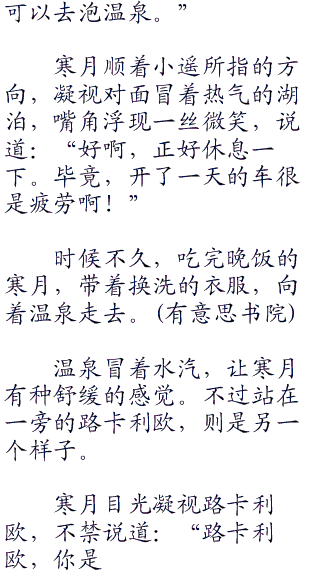 可以去泡温泉。”
寒月顺着小遥所指的方
向，凝视对面冒着热气的湖
泊，嘴角浮现一丝微笑，说
道：“好啊，正好休息一
下。毕竟，开了一天的车很
是疲劳啊！”
时候不久，吃完晚饭的
寒月，带着换洗的衣服，向
着温泉走去。(有意思书院)
温泉冒着水汽，让寒月
有种舒缓的感觉。不过站在
一旁的路卡利欧，则是另一
个样子。
寒月目光凝视路卡利
欧，不禁说道：“路卡利
欧，你是